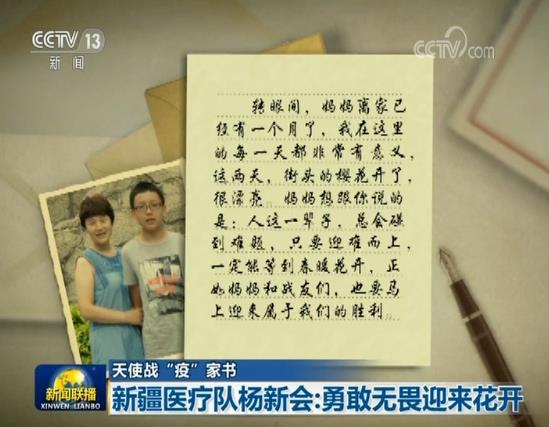 CCTV 13
新闻
CCTV.com
转眼间，妈妈离家已
经有一个月了，我在这里
的每一天都非常有意义，
这两天，街头的樱花开了，
很漂亮 妈妈想跟你说的
是：人这一辈子，总会碰
到难题，只要迎难而上，
一定能等到春暖花开，正
如妈妈和战友们，也要马
上迎来属于我们的胜利
天使战“疫”家书
新闻联播
XINWEN LIANBO
新疆医疗队杨新会:勇敢无畏迎来花开